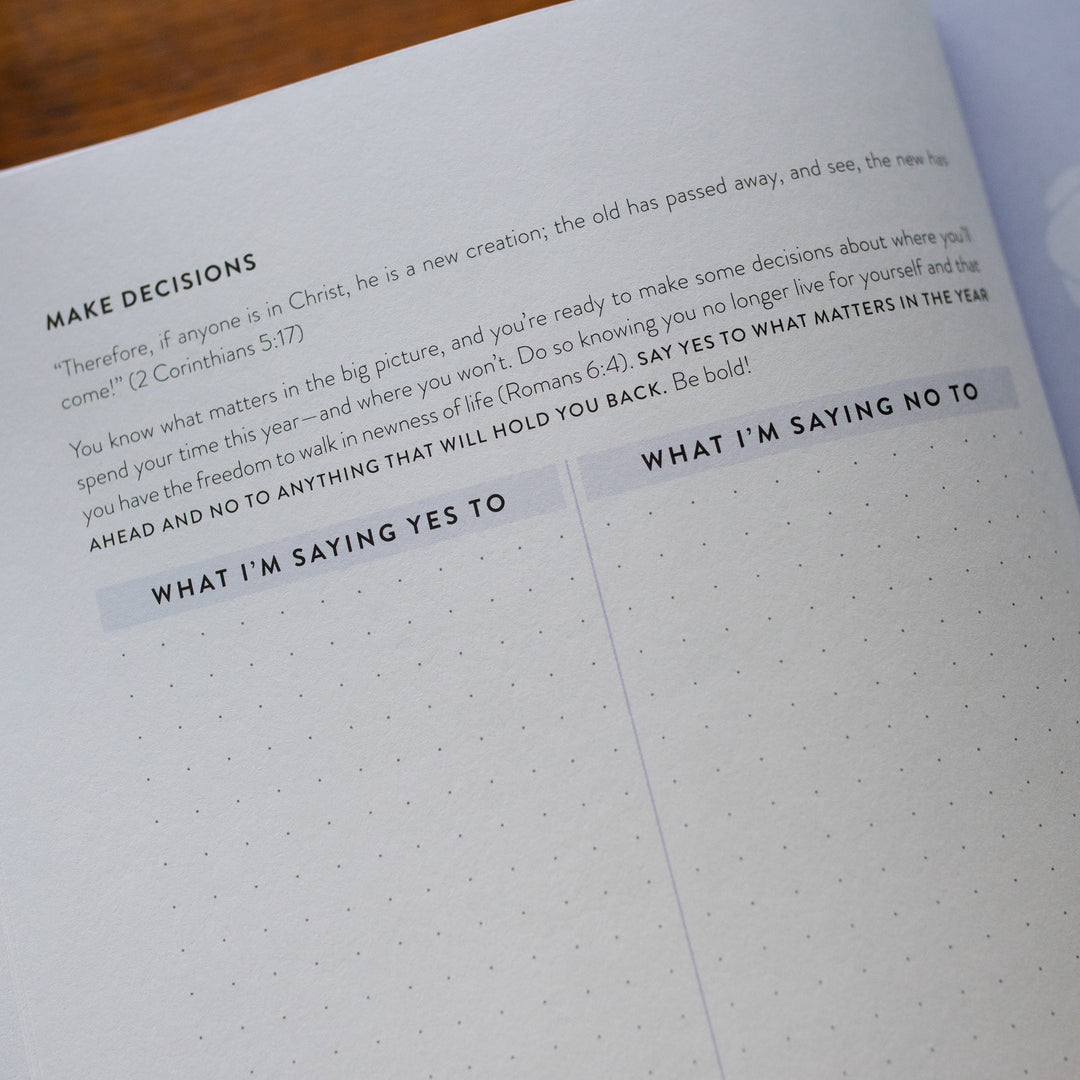 MAKE DECISIONS
“Therefore, if anyone is in Christ, he is a new creation; the old has passed away, and see, the new has
come!” (2 Corinthians 5:17)
You know what matters in the big picture, and you’re ready to make some decisions about where you’ll
spend your time this year—and where you won’t. Do so knowing you no longer live for yourself and that
you have the freedom to walk in newness of life (Romans 6:4). SAY YES TO WHAT MATTERS IN THE YEAR
AHEAD AND NO TO ANYTHING THAT WILL HOLD YOU BACK. Be bold!
WHAT I’M SAYING YES TO
WHAT I’M SAYING NO TO